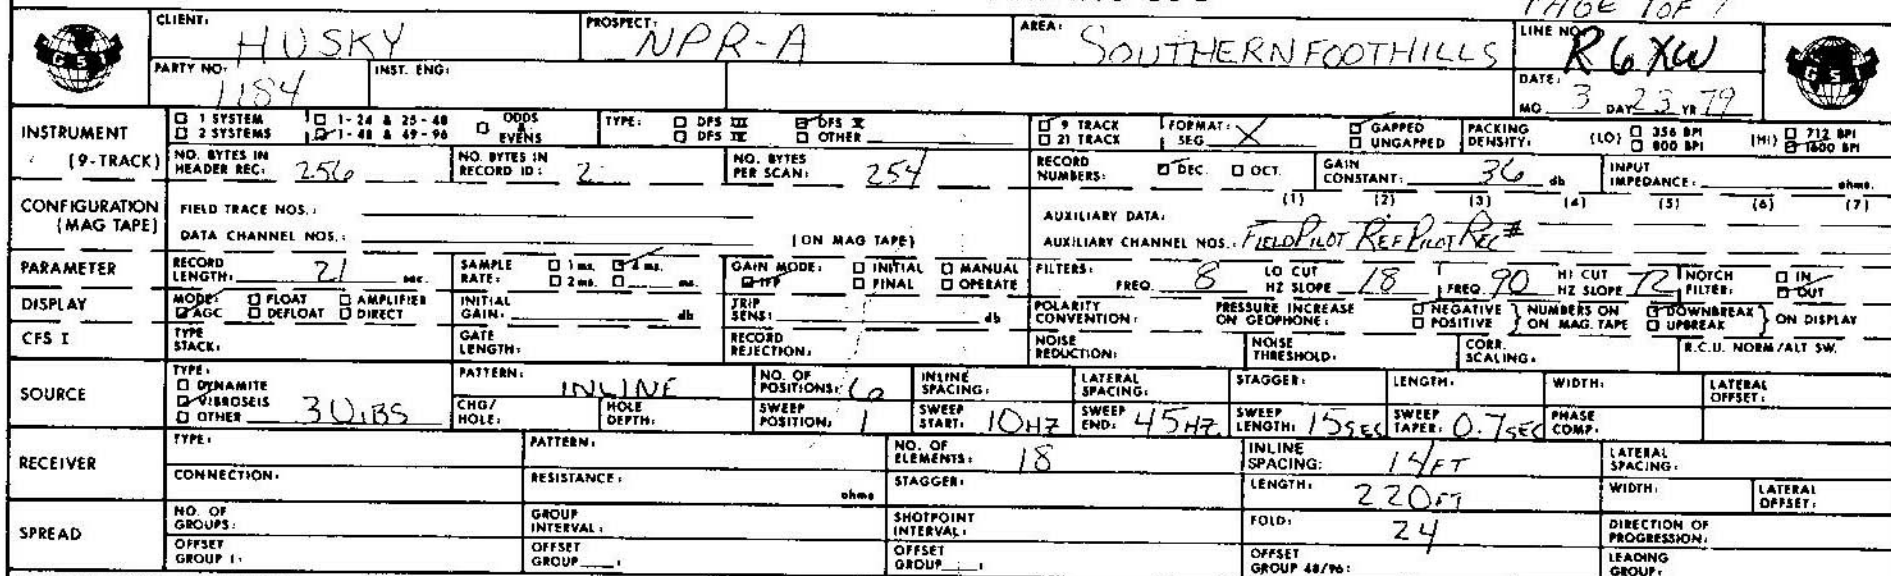 PAGE 1 OF 7
CLIENT: HUSKY PROSPECT: NPR-A AREA: SOUTHERN FOOTHILLS LINE NO. R6XW
GSI GSI
PARTY NO: 1184 INST. ENG: DATE: MO 3 DAY 23 YR 79
INSTRUMENT (9-TRACK)
1 SYSTEM 1-24 & 25-48 ODDS & EVENS TYPE: DFS III DFS V 9 TRACK FORMAT: SEG X GAPPED PACKING DENSITY: (LO) 356 BPI (HI) 712 BPI
2 SYSTEMS 1-48 & 49-96 DFS IV OTHER 21 TRACK UNGAPPED 800 BPI 1600 BPI
NO. BYTES IN HEADER REC: 256 NO. BYTES IN RECORD ID: 2 NO. BYTES PER SCAN: 254 RECORD NUMBERS: DEC. OCT. GAIN CONSTANT: 36 db INPUT IMPEDANCE: ohms.
CONFIGURATION (MAG TAPE)
FIELD TRACE NOS.: AUXILIARY DATA: (1) (2) (3) (4) (5) (6) (7)
DATA CHANNEL NOS.: (ON MAG TAPE) AUXILIARY CHANNEL NOS.: FIELD PILOT REF PILOT REC #
PARAMETER RECORD LENGTH: 21 sec. SAMPLE RATE: 1 ms. 4 ms. 2 ms. ms. GAIN MODE: INITIAL MANUAL IFP FINAL OPERATE FILTERS: FREQ. 8 LO CUT HZ SLOPE 18 FREQ. 90 HI CUT HZ SLOPE 72 NOTCH FILTER: IN OUT
DISPLAY MODE: FLOAT AMPLIFIER AGC DEFLOAT DIRECT INITIAL GAIN: db TRIP SENS: db POLARITY CONVENTION: PRESSURE INCREASE ON GEOPHONE: NEGATIVE POSITIVE } NUMBERS ON ON MAG. TAPE DOWNBREAK UPBREAK } ON DISPLAY
CFS I TYPE STACK: GATE LENGTH: RECORD REJECTION: NOISE REDUCTION: NOISE THRESHOLD: CORR. SCALING: R.C.U. NORM/ALT SW.
SOURCE TYPE: DYNAMITE VIBROSEIS OTHER 3 VIBS PATTERN: INLINE NO. OF POSITIONS: 6 INLINE SPACING: LATERAL SPACING: STAGGER: LENGTH: WIDTH: LATERAL OFFSET:
CHG/HOLE: HOLE DEPTH: SWEEP POSITION: 1 SWEEP START: 10HZ SWEEP END: 45HZ SWEEP LENGTH: 15SEC SWEEP TAPER: 0.7SEC PHASE COMP:
RECEIVER TYPE: PATTERN: NO. OF ELEMENTS: 18 INLINE SPACING: 14FT LATERAL SPACING:
CONNECTION: RESISTANCE: ohms STAGGER: LENGTH: 220FT WIDTH: LATERAL OFFSET:
SPREAD NO. OF GROUPS: GROUP INTERVAL: SHOTPOINT INTERVAL: FOLD: 24 DIRECTION OF PROGRESSION:
OFFSET GROUP 1: OFFSET GROUP : OFFSET GROUP : OFFSET GROUP 48/96: LEADING GROUP: